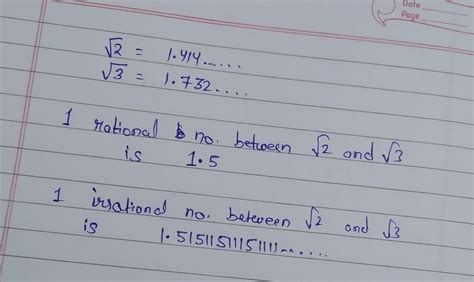 Date
Page
√2 = 1.414.....
√3 = 1.732....
1 rational no. between √2 and √3
is 1.5
1 irrational no. between √2 and √3
is 1.51511511151111.......